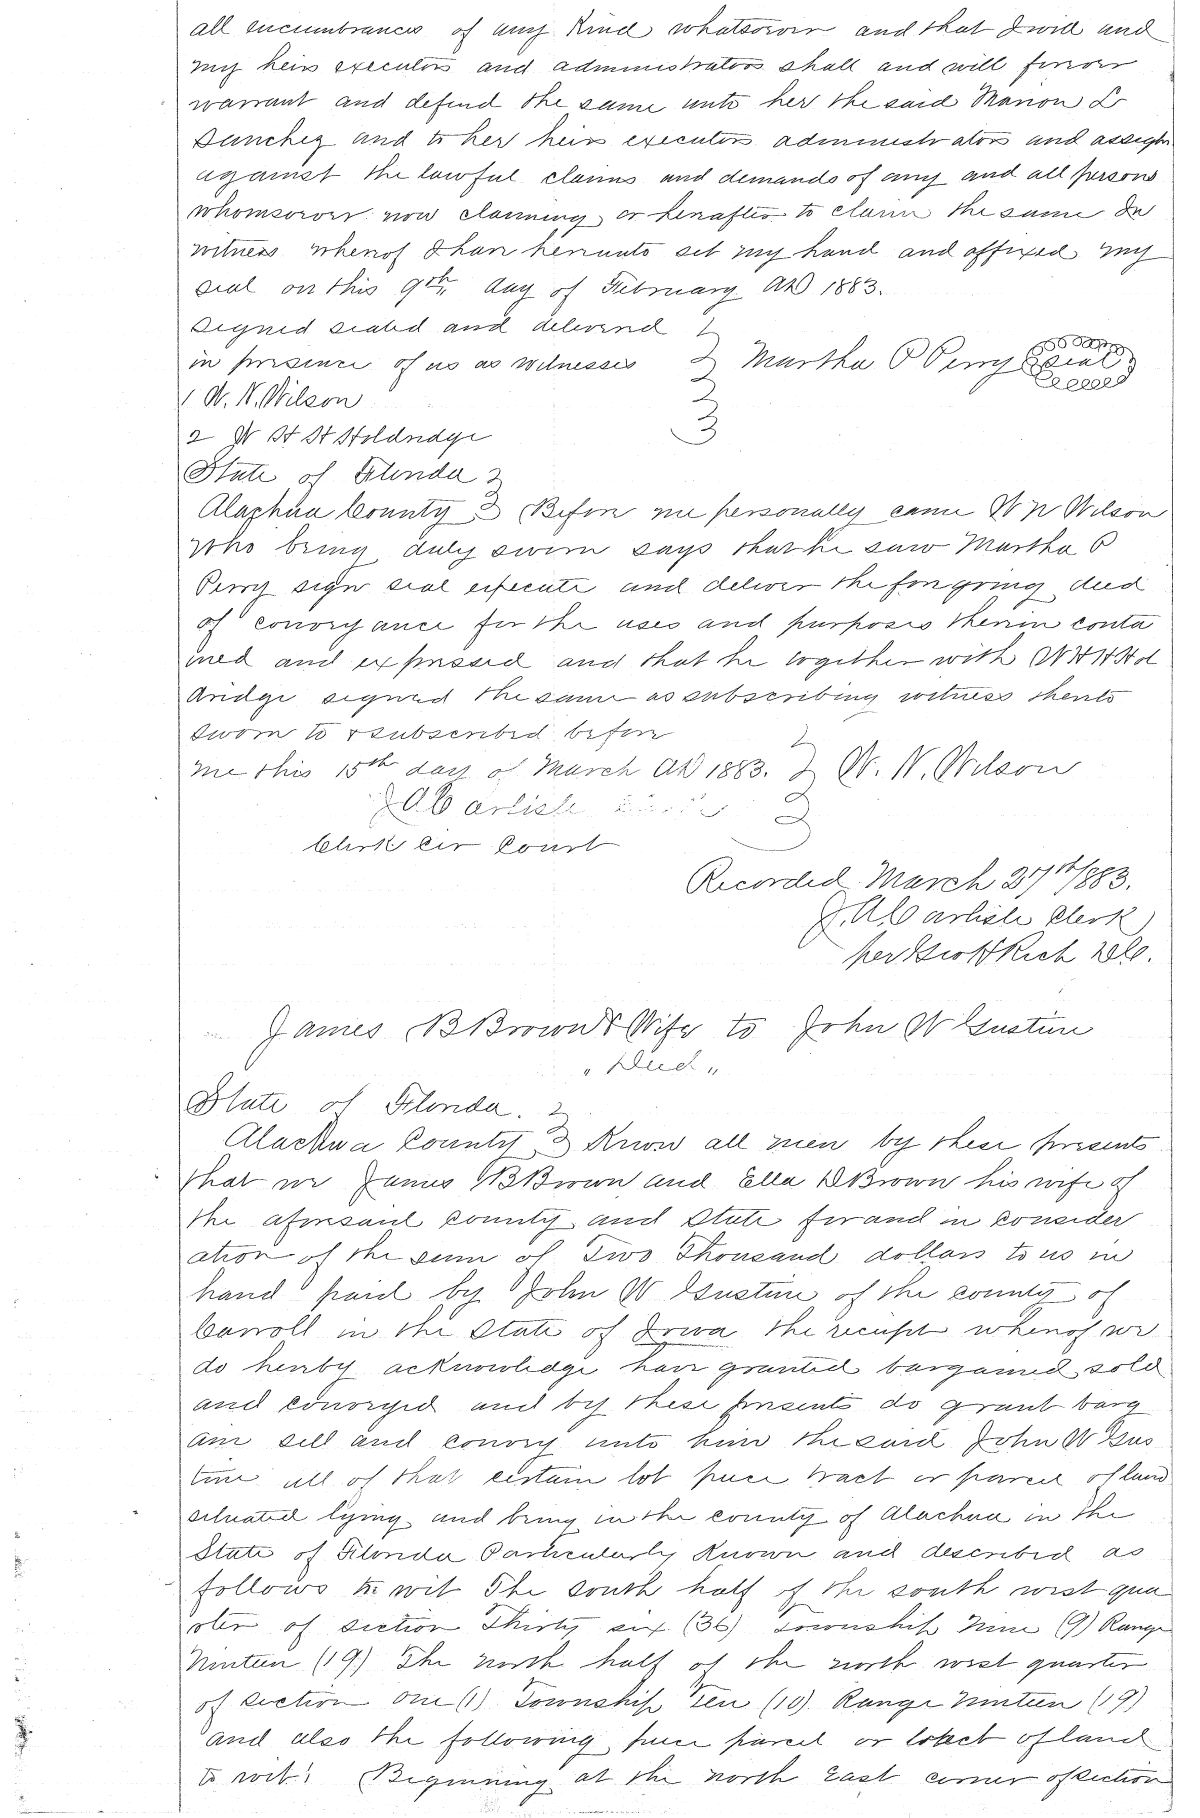 all encumbrances of any Kind whatsoever and that I will and
my heirs executors and administrators shall and will forever
warrant and defend the same unto her the said Marion L
Sanchez and to her heirs executors administrators and assigns
against the lawful claims and demands of any and all persons
whomsoever now claiming or hereafter to claim the same In
witness whereof I have hereunto set my hand and affixed my
seal on this 9th day of February AD 1883.
Signed sealed and delivered
in presence of us as witnesses Martha P Perry Seal
1 W. N. Wilson
2 W H H Holdridge
State of Florida
Alachua County Before me personally came W N Wilson
who being duly sworn says that he saw Martha P
Perry sign seal execute and deliver the foregoing deed
of conveyance for the uses and purposes therein conta
ined and expressed and that he together with W H H Hol
dridge signed the same as subscribing witness thereto
Sworn to & subscribed before
me this 15th day of March AD 1883. W. N. Wilson
J A Carlisle
Clerk Cir Court
Recorded March 27th 1883.
J. A. Carlisle Clerk
per Geo H Rich D.C.
James B Brown & Wife to John W Gustine
" Deed "
State of Florida.
Alachua County Know all men by these presents
that we James B Brown and Ella D Brown his wife of
the aforesaid county and State for and in consider
ation of the sum of Two Thousand dollars to us in
hand paid by John W Gustine of the county of
Carroll in the State of Iowa the receipt whereof we
do hereby acknowledge have granted bargained sold
and conveyed and by these presents do grant barg
ain sell and convey unto him the said John W Gus
tine all of that certain lot piece tract or parcel of land
situated lying and being in the county of Alachua in the
State of Florida Particularly Known and described as
follows to wit The south half of the south west qua
rter of section Thirty six (36) Township Nine (9) Range
Ninteen (19) The north half of the north west quarter
of section One (1) Township Ten (10) Range Ninteen (19)
and also the following piece parcel or lot of land
to wit: Beginning at the north East corner of section